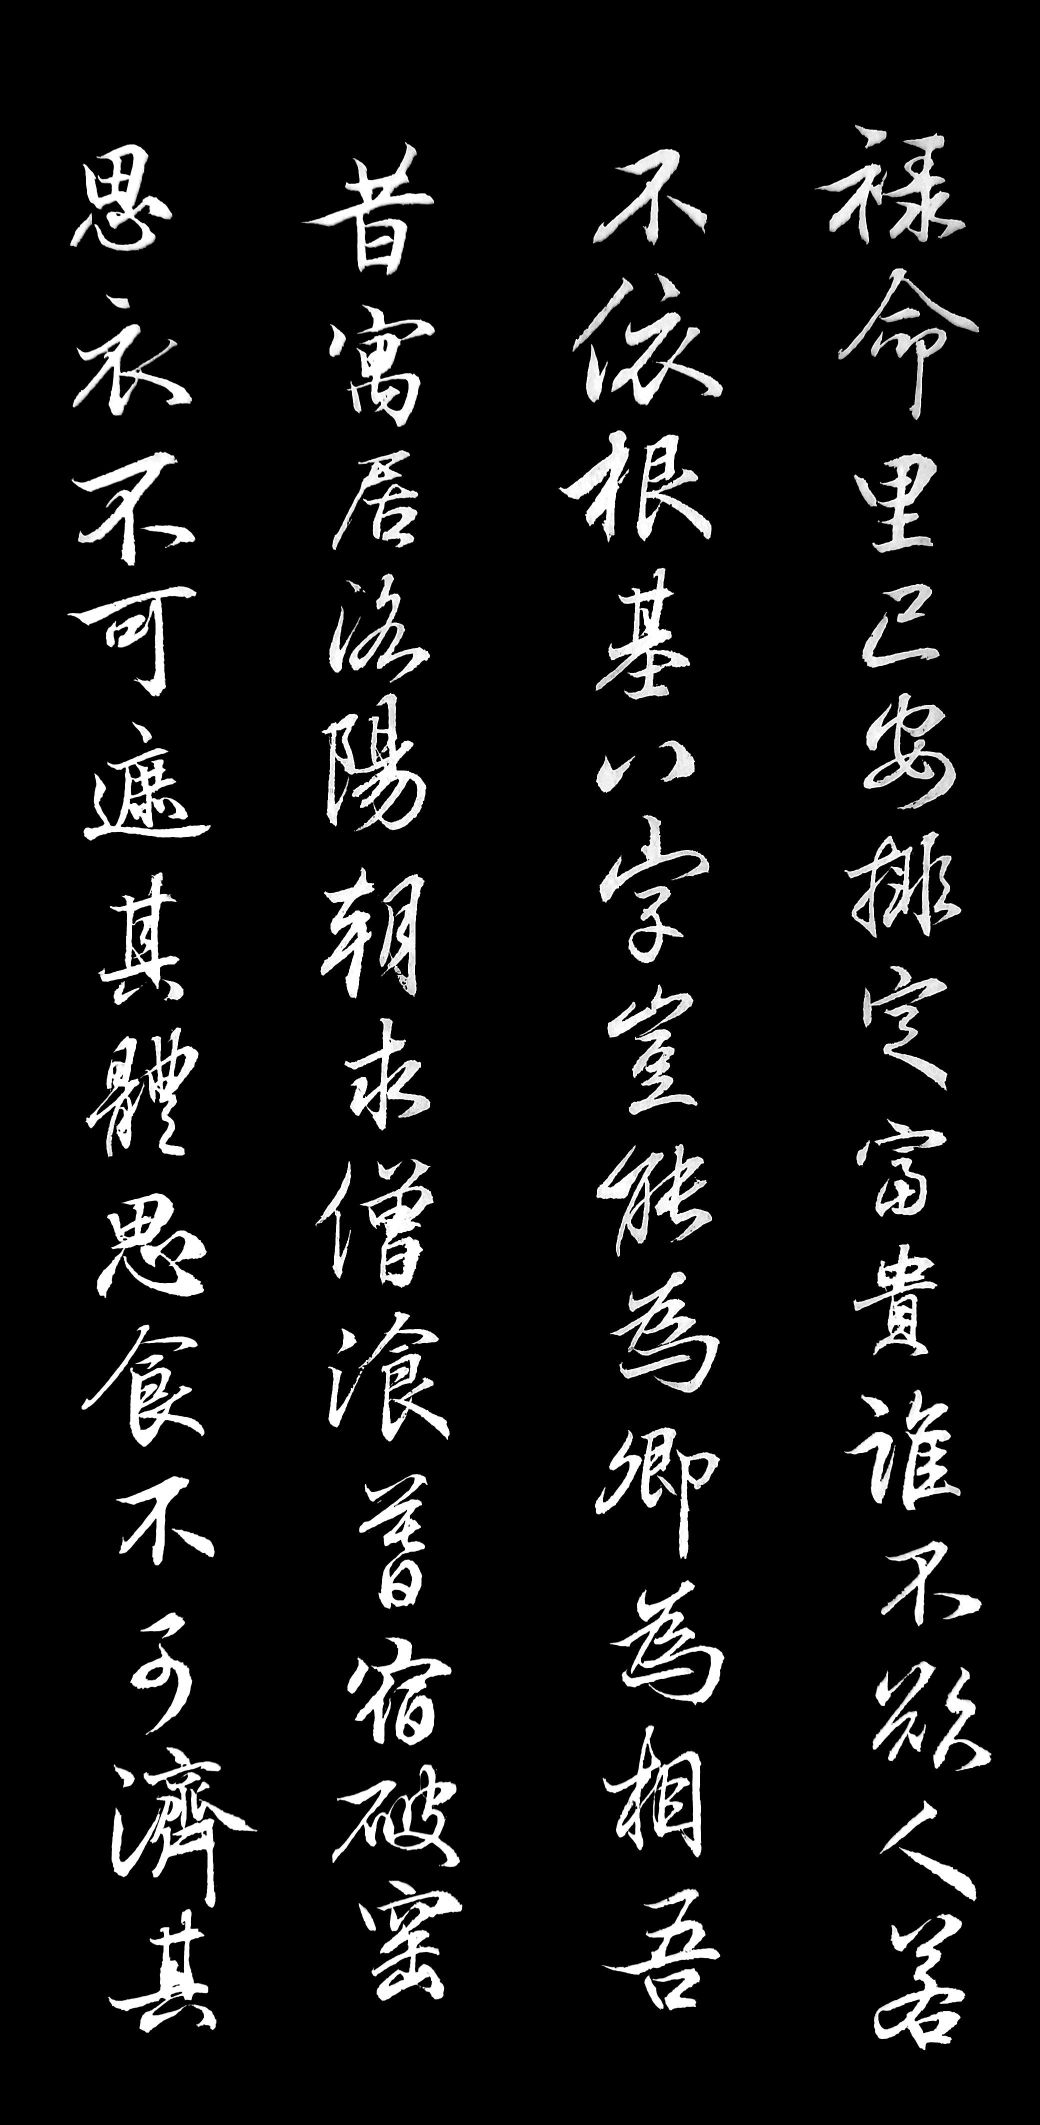 祿命里已安排定富貴誰不欲人若
不依根基八字豈能為卿為相吾
昔寓居洛陽朝求僧飡暮宿破窑
思衣不可遮其體思食不可濟其